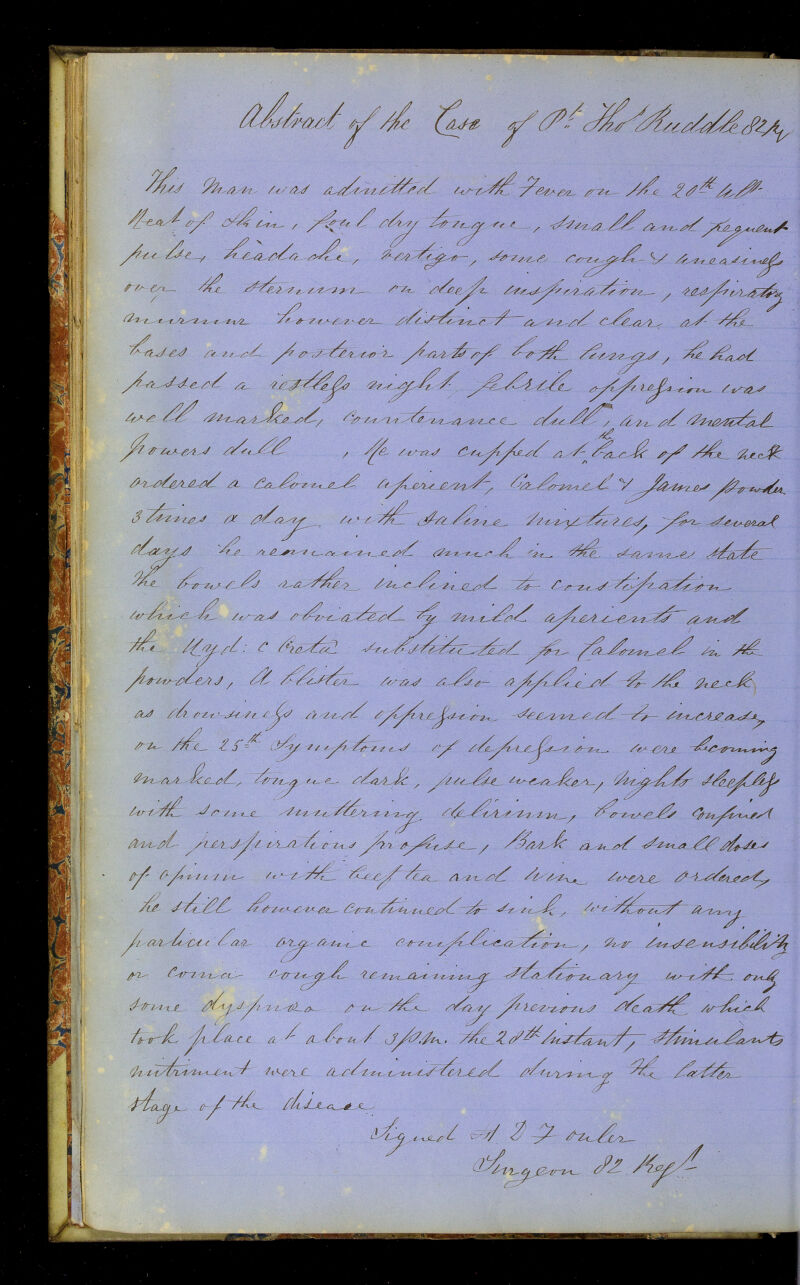 Abstract of the Case of Pt. Thos Ruddle 82 Rg
This man was admitted with Fever on the 20th Ult.
Heat of skin, foul dry tongue, small and frequent
pulse, headache, vertigo, some cough & uneasiness
over the sternum on deep inspiration, respiratory
murmur however distinct and clear at the
bases and posterior parts of both lungs, he had
passed a restless night, febrile oppression was
well marked, countenance dull, and mental
powers dull , He was cupped at the back of the neck
ordered a calomel aperient, Calomel & James Powder
3 times a day with saline mixtures, for several
days he remained much in the same state
the bowels rather inclined to constipation
which was obviated by mild aperients and
the Hyd: c Creta substituted for Calomel in the
powders, A blister was also applied to the neck
as drowsiness and oppression seemed to increase,
on the 25th Symptoms of depression were becoming
marked, tongue dark, pulse weaker, nights sleepless
with some muttering delirium, bowels confined
and perspirations profuse, Bark and small doses
of opium with beef tea and wine were ordered,
he still however continued to sink, without any
particular organic complication, no insensibility
or coma cough remaining stationary with only
some dyspnœa on the day previous death which
took place at about 3 p.m. the 28th Instant, Stimulants
nutriment were administered during the latter
stage of the disease
Signed A D Fouler
Surgeon 82 Regt